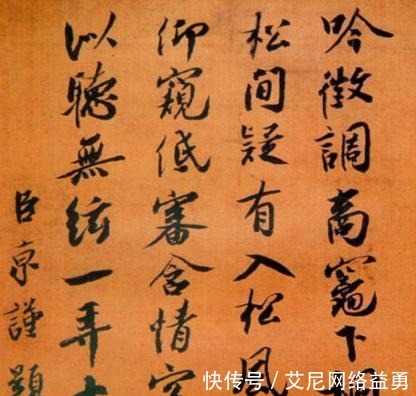 吟徵調商竈下桐
松間疑有入松風
仰窺低審含情客
以聽無絃一弄
臣京謹題
快传号／艾尼网络益勇